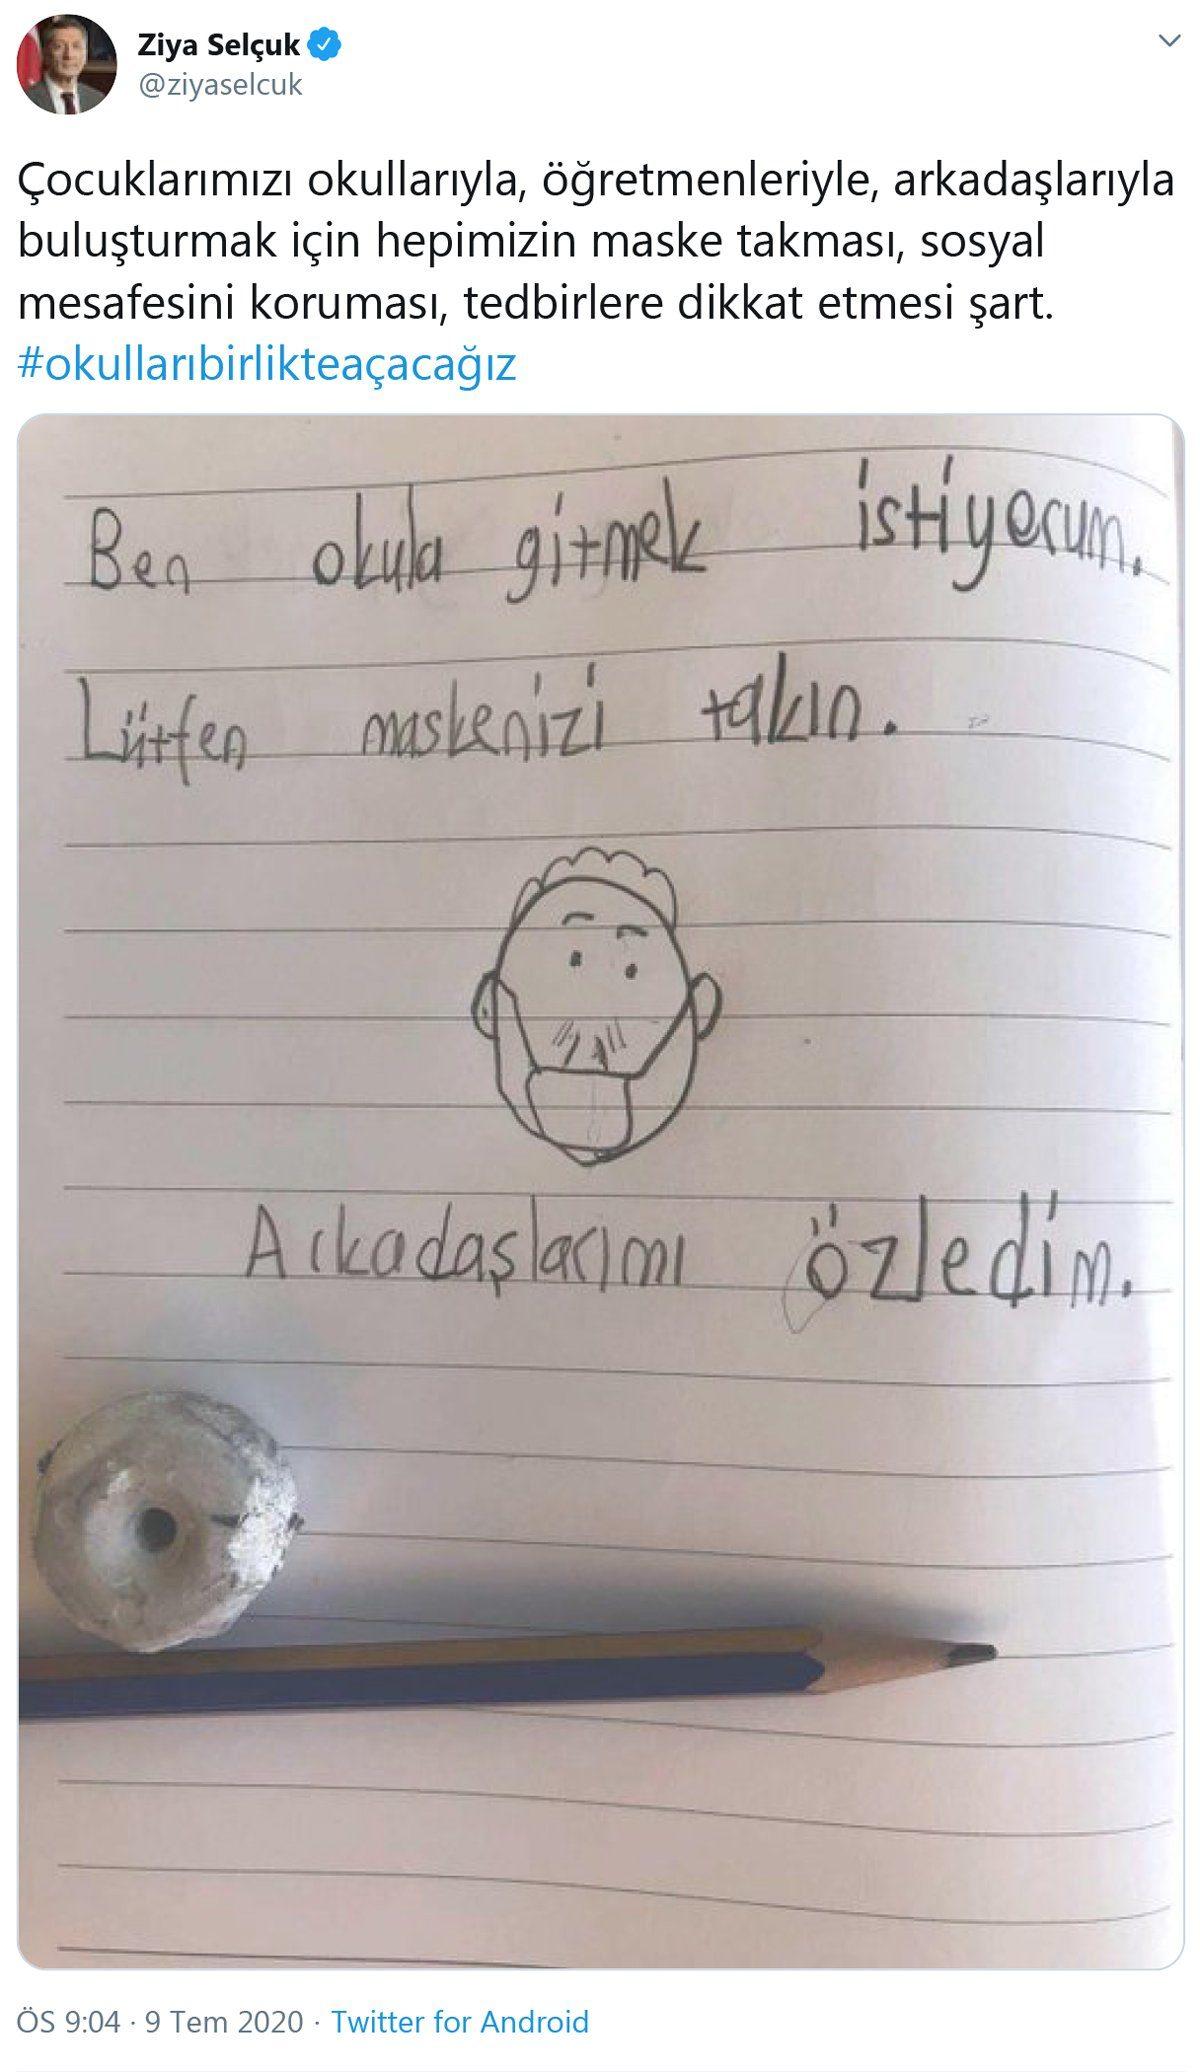 Ziya Selçuk
@ziyaselcuk
Çocuklarımızı okullarıyla, öğretmenleriyle, arkadaşlarıyla
buluşturmak için hepimizin maske takması, sosyal
mesafesini koruması, tedbirlere dikkat etmesi şart.
#okullarıbirlikteaçacağız
Ben okula gitmek istiyorum.
Lütfen maskenizi takın.
Arkadaşlarımı özledim.
ÖS 9:04 · 9 Tem 2020 · Twitter for Android